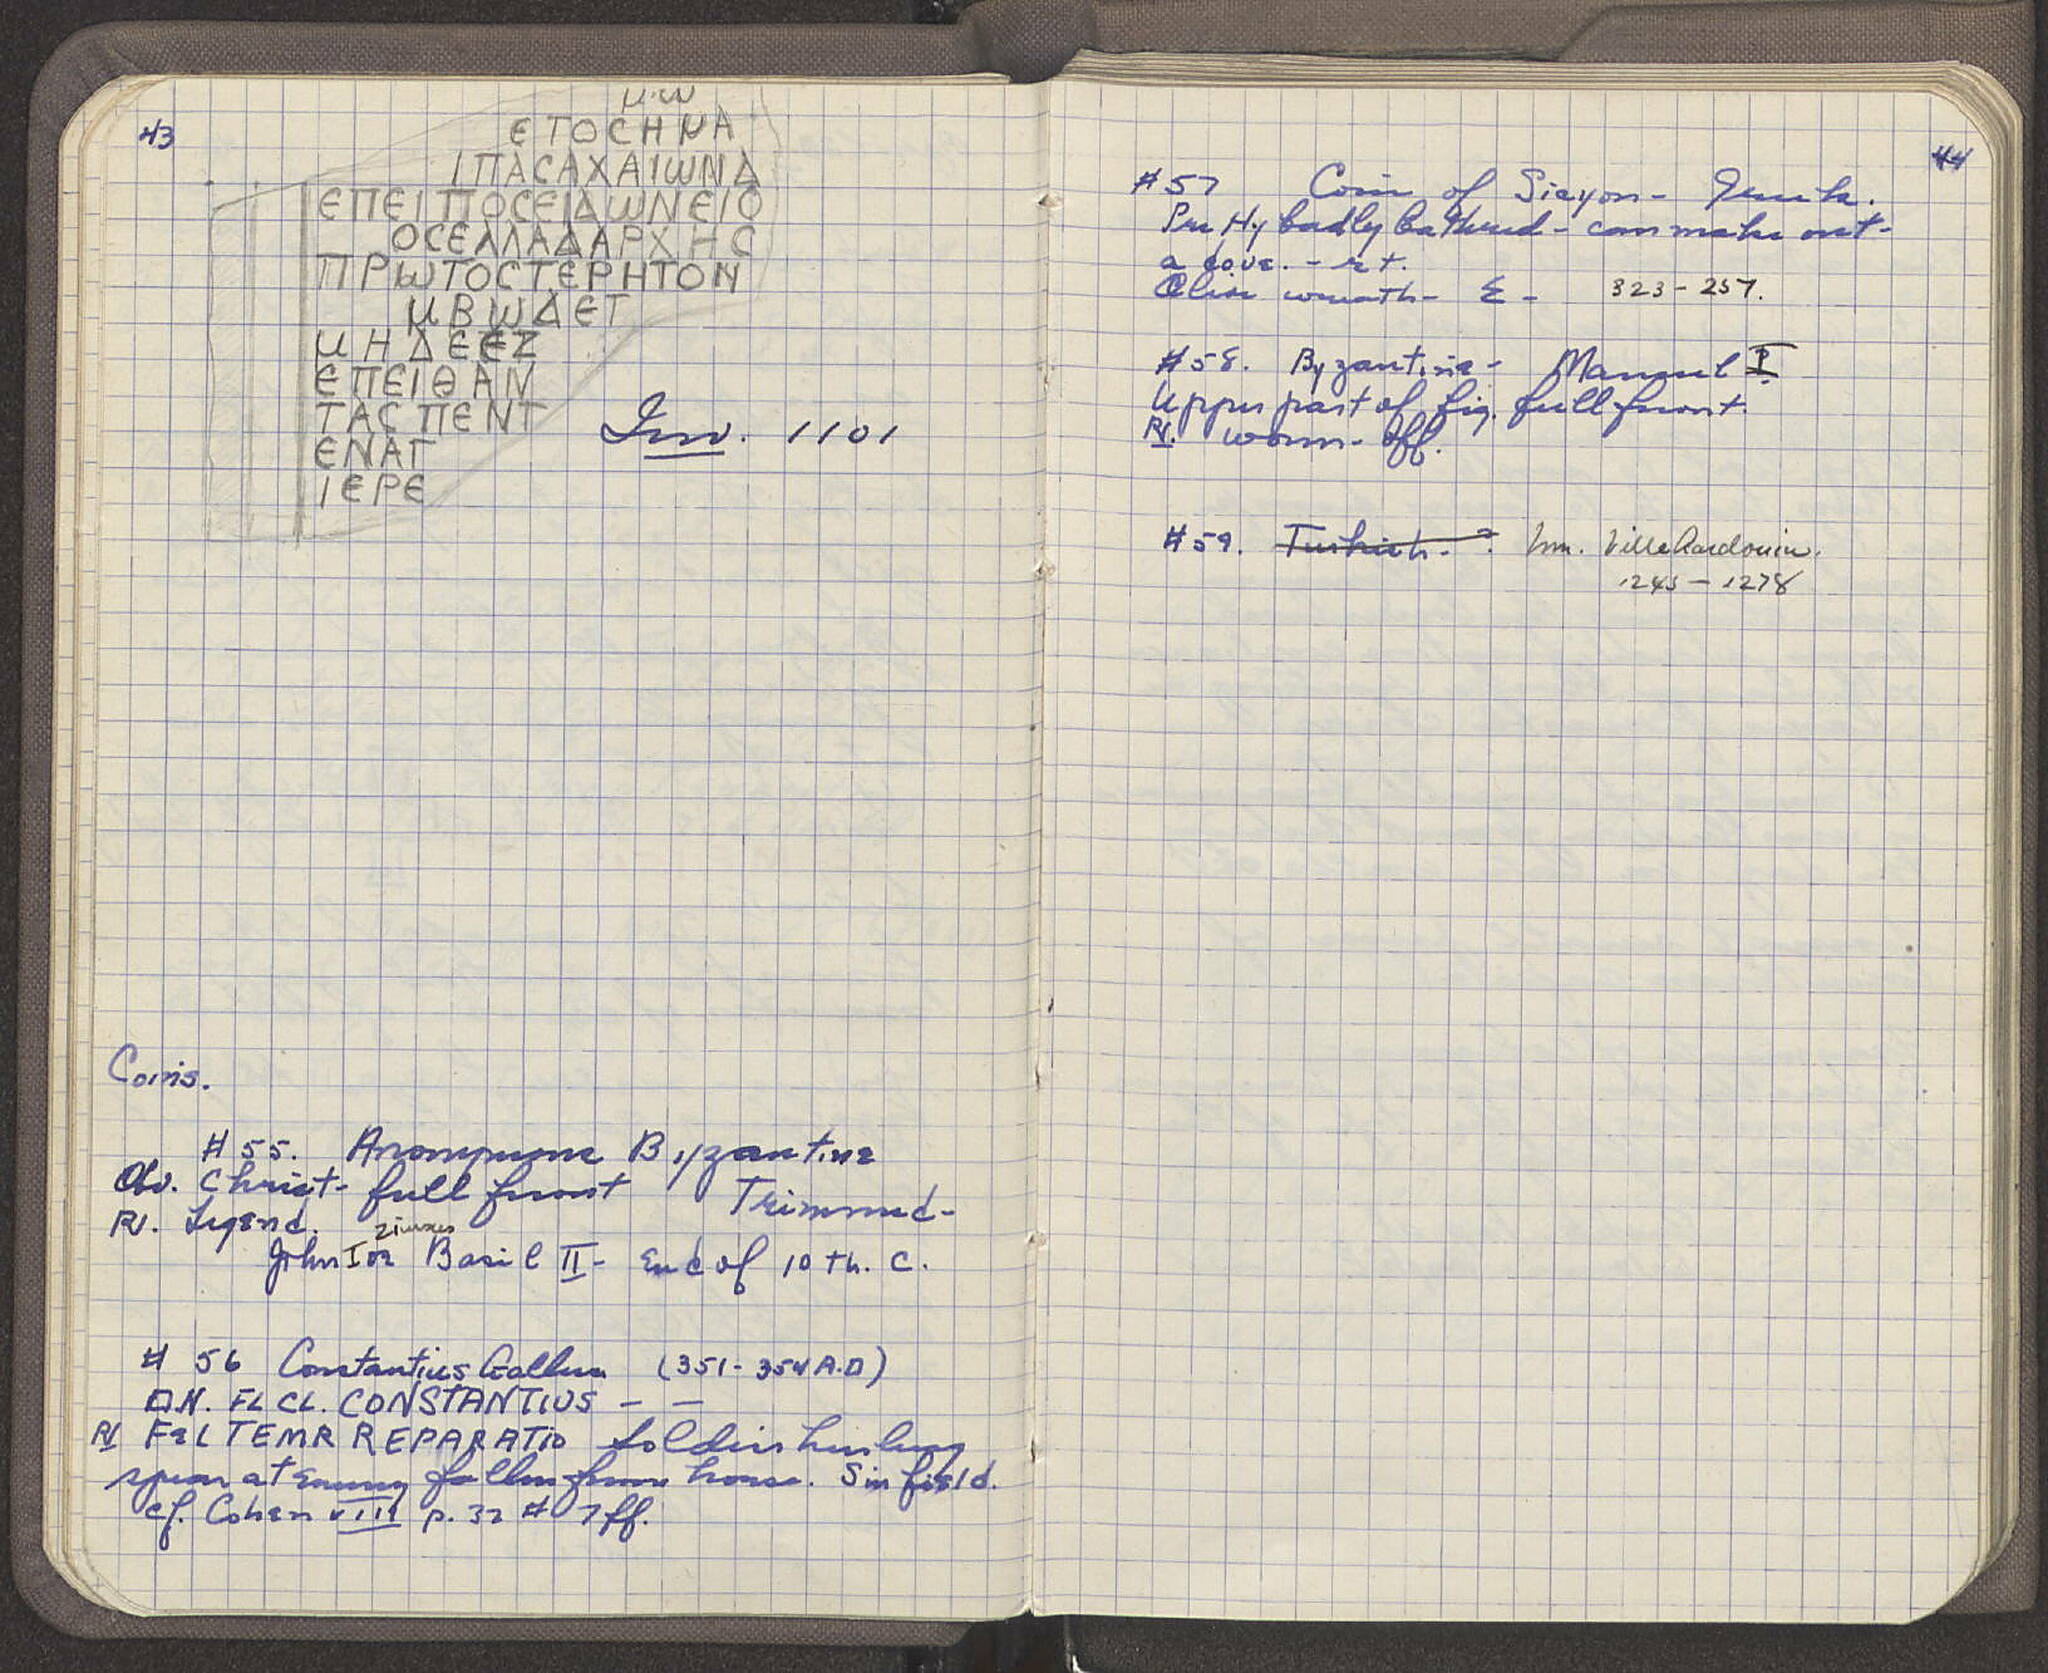 43
μω
ЄTOCHMA
IΠACAXAIωNΔ
ЄΠEIΠOCЄIΔωNЄIO
OCЄΛΛAΔAPXHC
ΠPωTOCTЄPHTON
μBωΔЄT
μHΔЄЄZ
ЄΠЄIΘAN
TACΠЄNT
ЄNAΓ
IЄPЄ
Inv. 1101
Coins.
#55. Anonymous Byzantine
Obv. Christ - full front Trimmed -
Rv. Legend.
John I or Basil II - End of 10th. C.
# 56 Constantius Gallus (351-354 A.D)
D.N. FL CL. CONSTANTIUS - -
Rv FEL TEMR REPARATIO Soldier hurling
spear at enemy fallen from horse. S in field.
cf. Cohen VIII p. 32 # 7ff.
44
#57 Coin of Sicyon - Greek.
Pretty badly battered - can make out -
a dove. - rt.
Olive wreath - Σ - 323-257.
#58. Byzantine - Manuel I
Upper part of fig. full front.
Rv. worn - off.
#59. Turkish - ? Wm. Villehardouin.
1245 - 1278